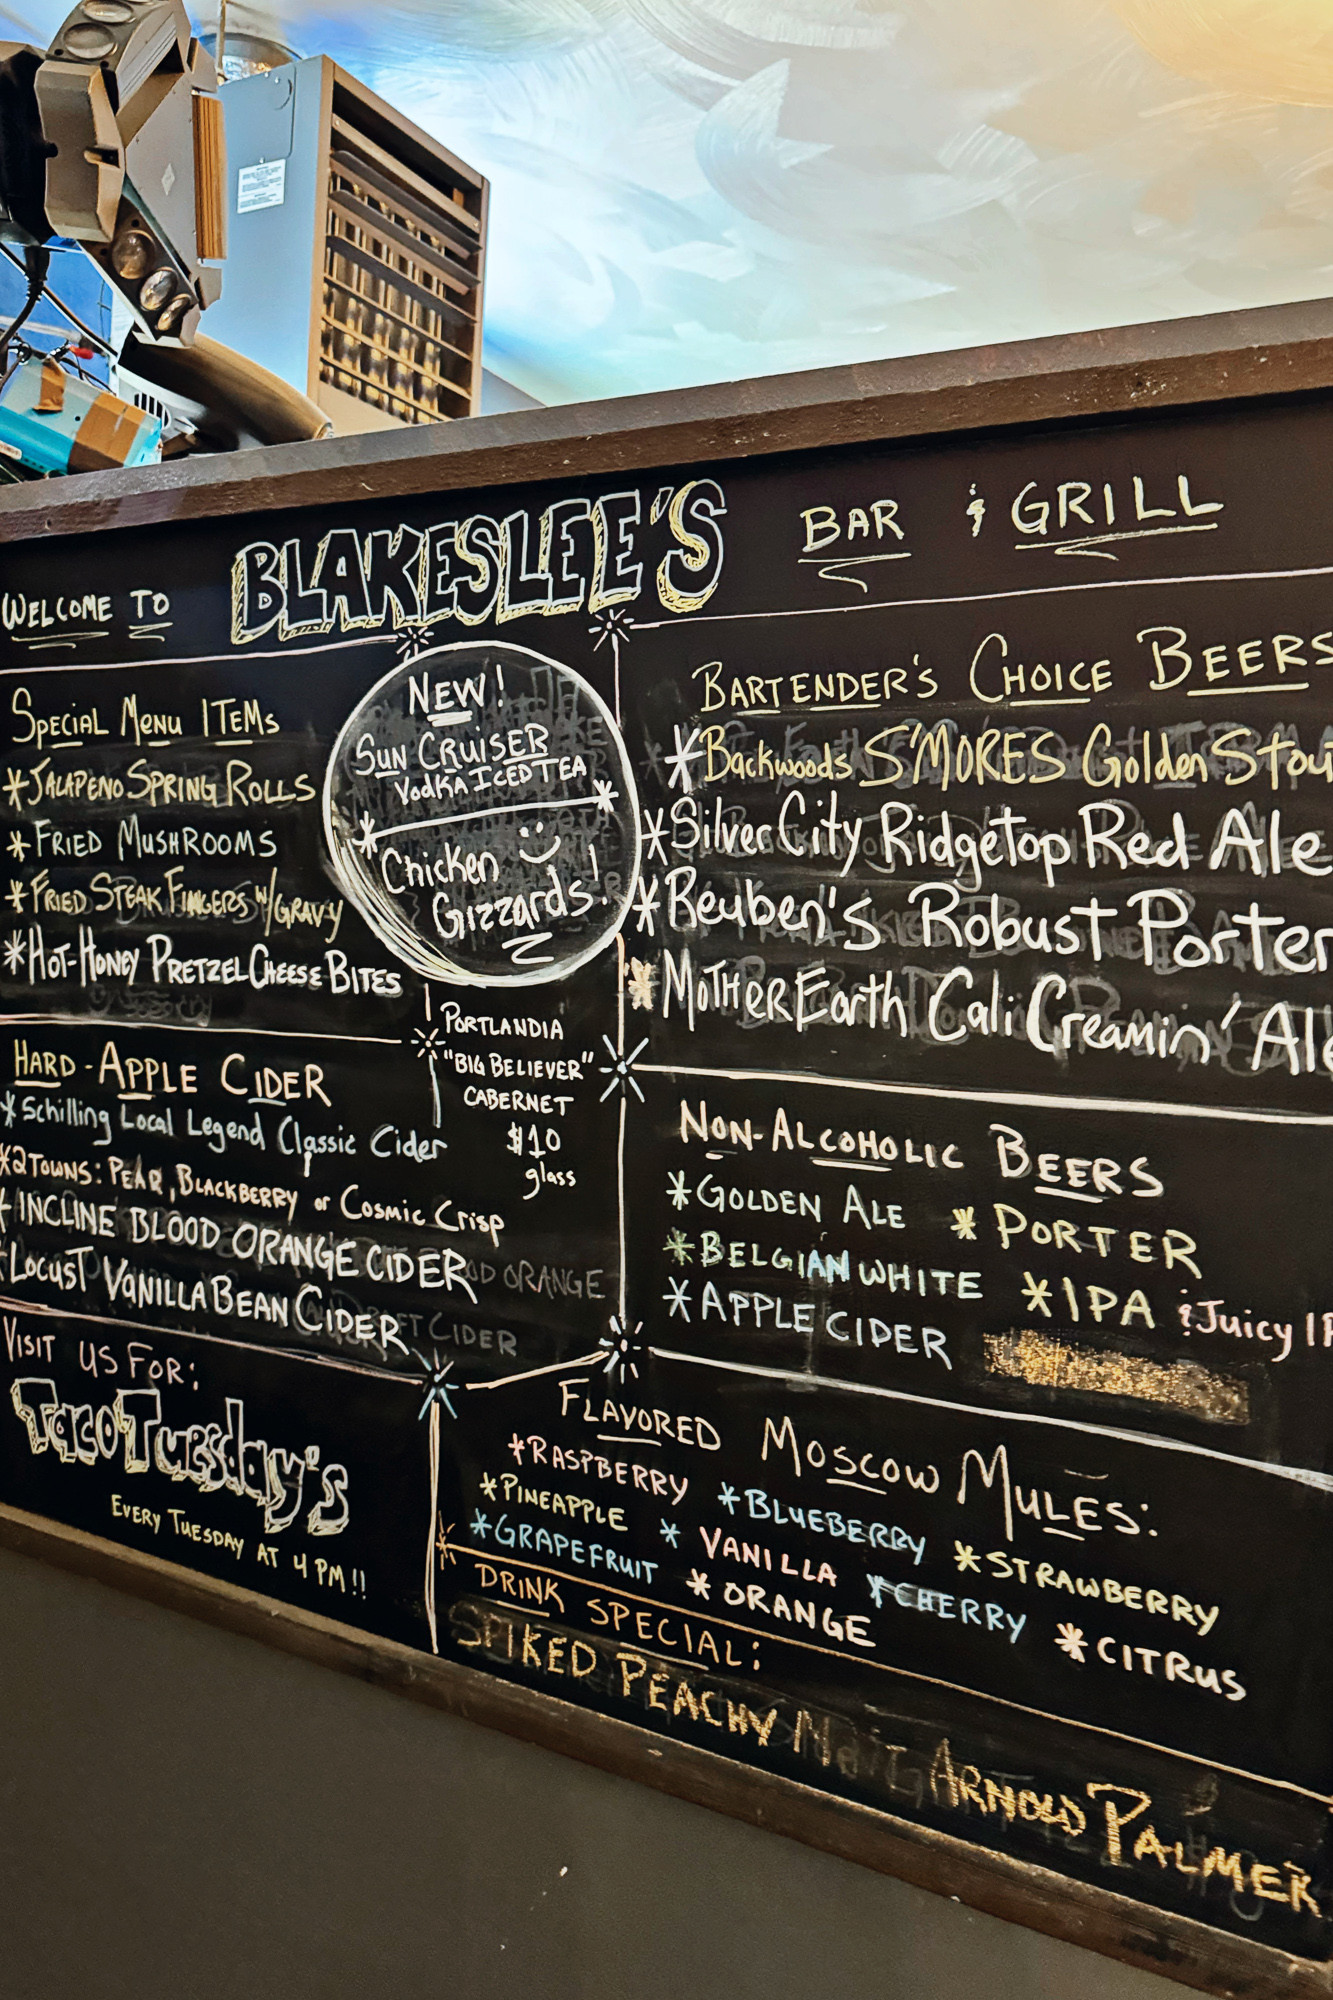 WELCOME TO BLAKESLEE'S BAR & GRILL
SPECIAL MENU ITEMS
*JALAPENO SPRING ROLLS
*FRIED MUSHROOMS
*FRIED STEAK FINGERS W/GRAVY
*HOT-HONEY PRETZEL CHEESE BITES
NEW!
SUN CRUISER
VODKA ICED TEA
Chicken
Gizzards!
PORTLANDIA
"BIG BELIEVER"
CABERNET
$10
glass
HARD-APPLE CIDER
*Schilling Local Legend Classic Cider
*2TOWNS: PEAR, BLACKBERRY or COSMIC CRISP
*INCLINE BLOOD ORANGE CIDER
*LOCUST VANILLA BEAN CIDER
VISIT US FOR:
Taco Tuesday's
EVERY TUESDAY AT 4 PM!!
BARTENDER'S CHOICE BEERS
*Backwoods S'MORES Golden Stou
*Silver City Ridgetop Red Ale
*Reuben's Robust Porter
*MOTHER Earth Cali Creamin' Ale
NON-ALCOHOLIC BEERS
*GOLDEN ALE *PORTER
*BELGIAN WHITE *IPA & Juicy IP
*APPLE CIDER
FLAVORED MOSCOW MULES:
*RASPBERRY *BLUEBERRY *STRAWBERRY
*PINEAPPLE *VANILLA *CHERRY *CITRUS
*GRAPEFRUIT *ORANGE
DRINK SPECIAL:
SPIKED PEACHY ARNOLD PALMER